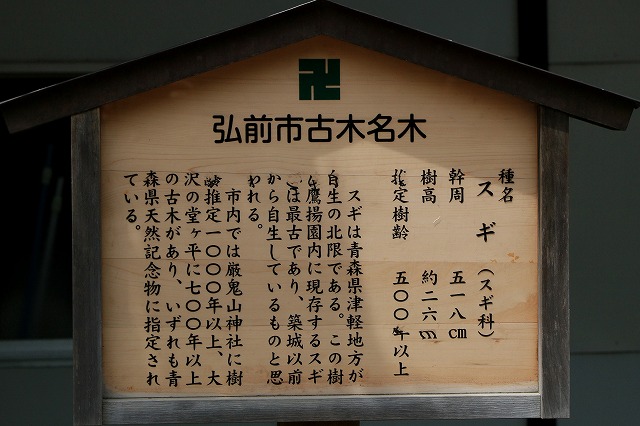 弘前市古木名木
種名 スギ (スギ科)
幹周 五一八cm
樹高 約二六m
推定樹齢 五〇〇年以上
スギは青森県津軽地方が
自生の北限である。この樹
は鷹揚園内に現存するスギ
では最古であり、築城以前
から自生しているものと思
われる。
市内では厳鬼山神社に樹
齢推定一〇〇〇年以上、大
沢の堂ヶ平に七〇〇年以上
の古木があり、いずれも青
森県天然記念物に指定され
ている。